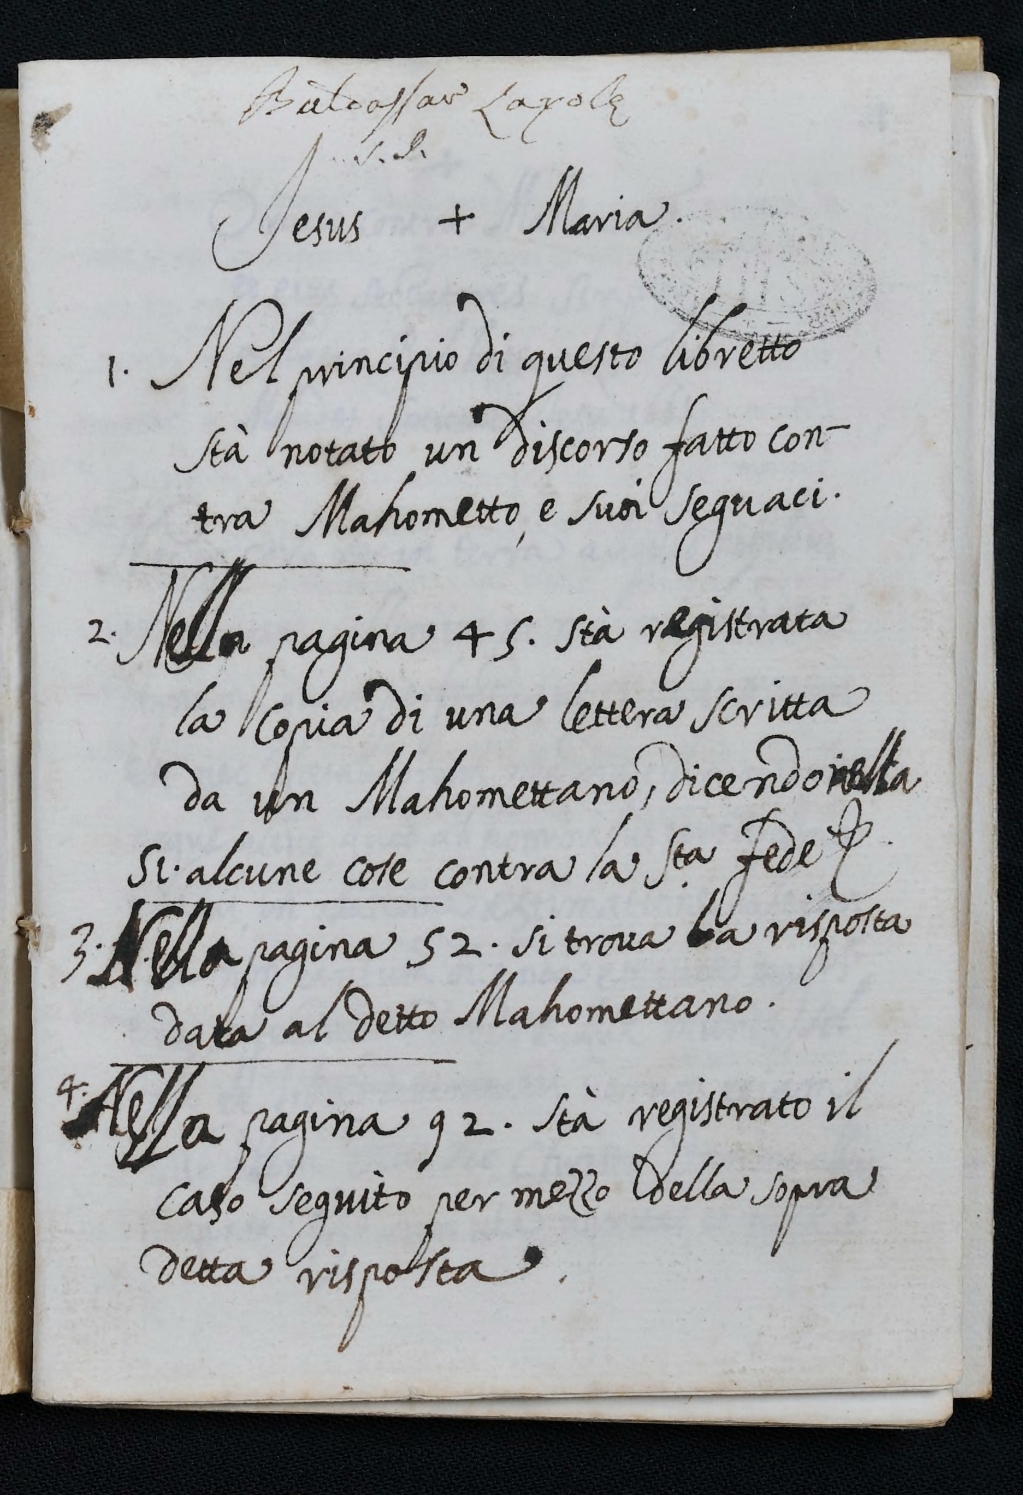 Baldassar Loyola
S. J.
Jesus + Maria.
1. Nel principio di questo libretto
stà notato un discorso fatto con-
tra Mahometto, e suoi seguaci.
2. Nella pagina 45. stà registrata
la copia di una lettera scritta
da un Mahomettano, dicendo nella
si alcune cose contra la Sta fede
3. Nella pagina 52. si trova la risposta
data al detto Mahomettano.
4. Nella pagina 92. stà registrato il
caso seguito per mezzo della sopra
detta risposta.